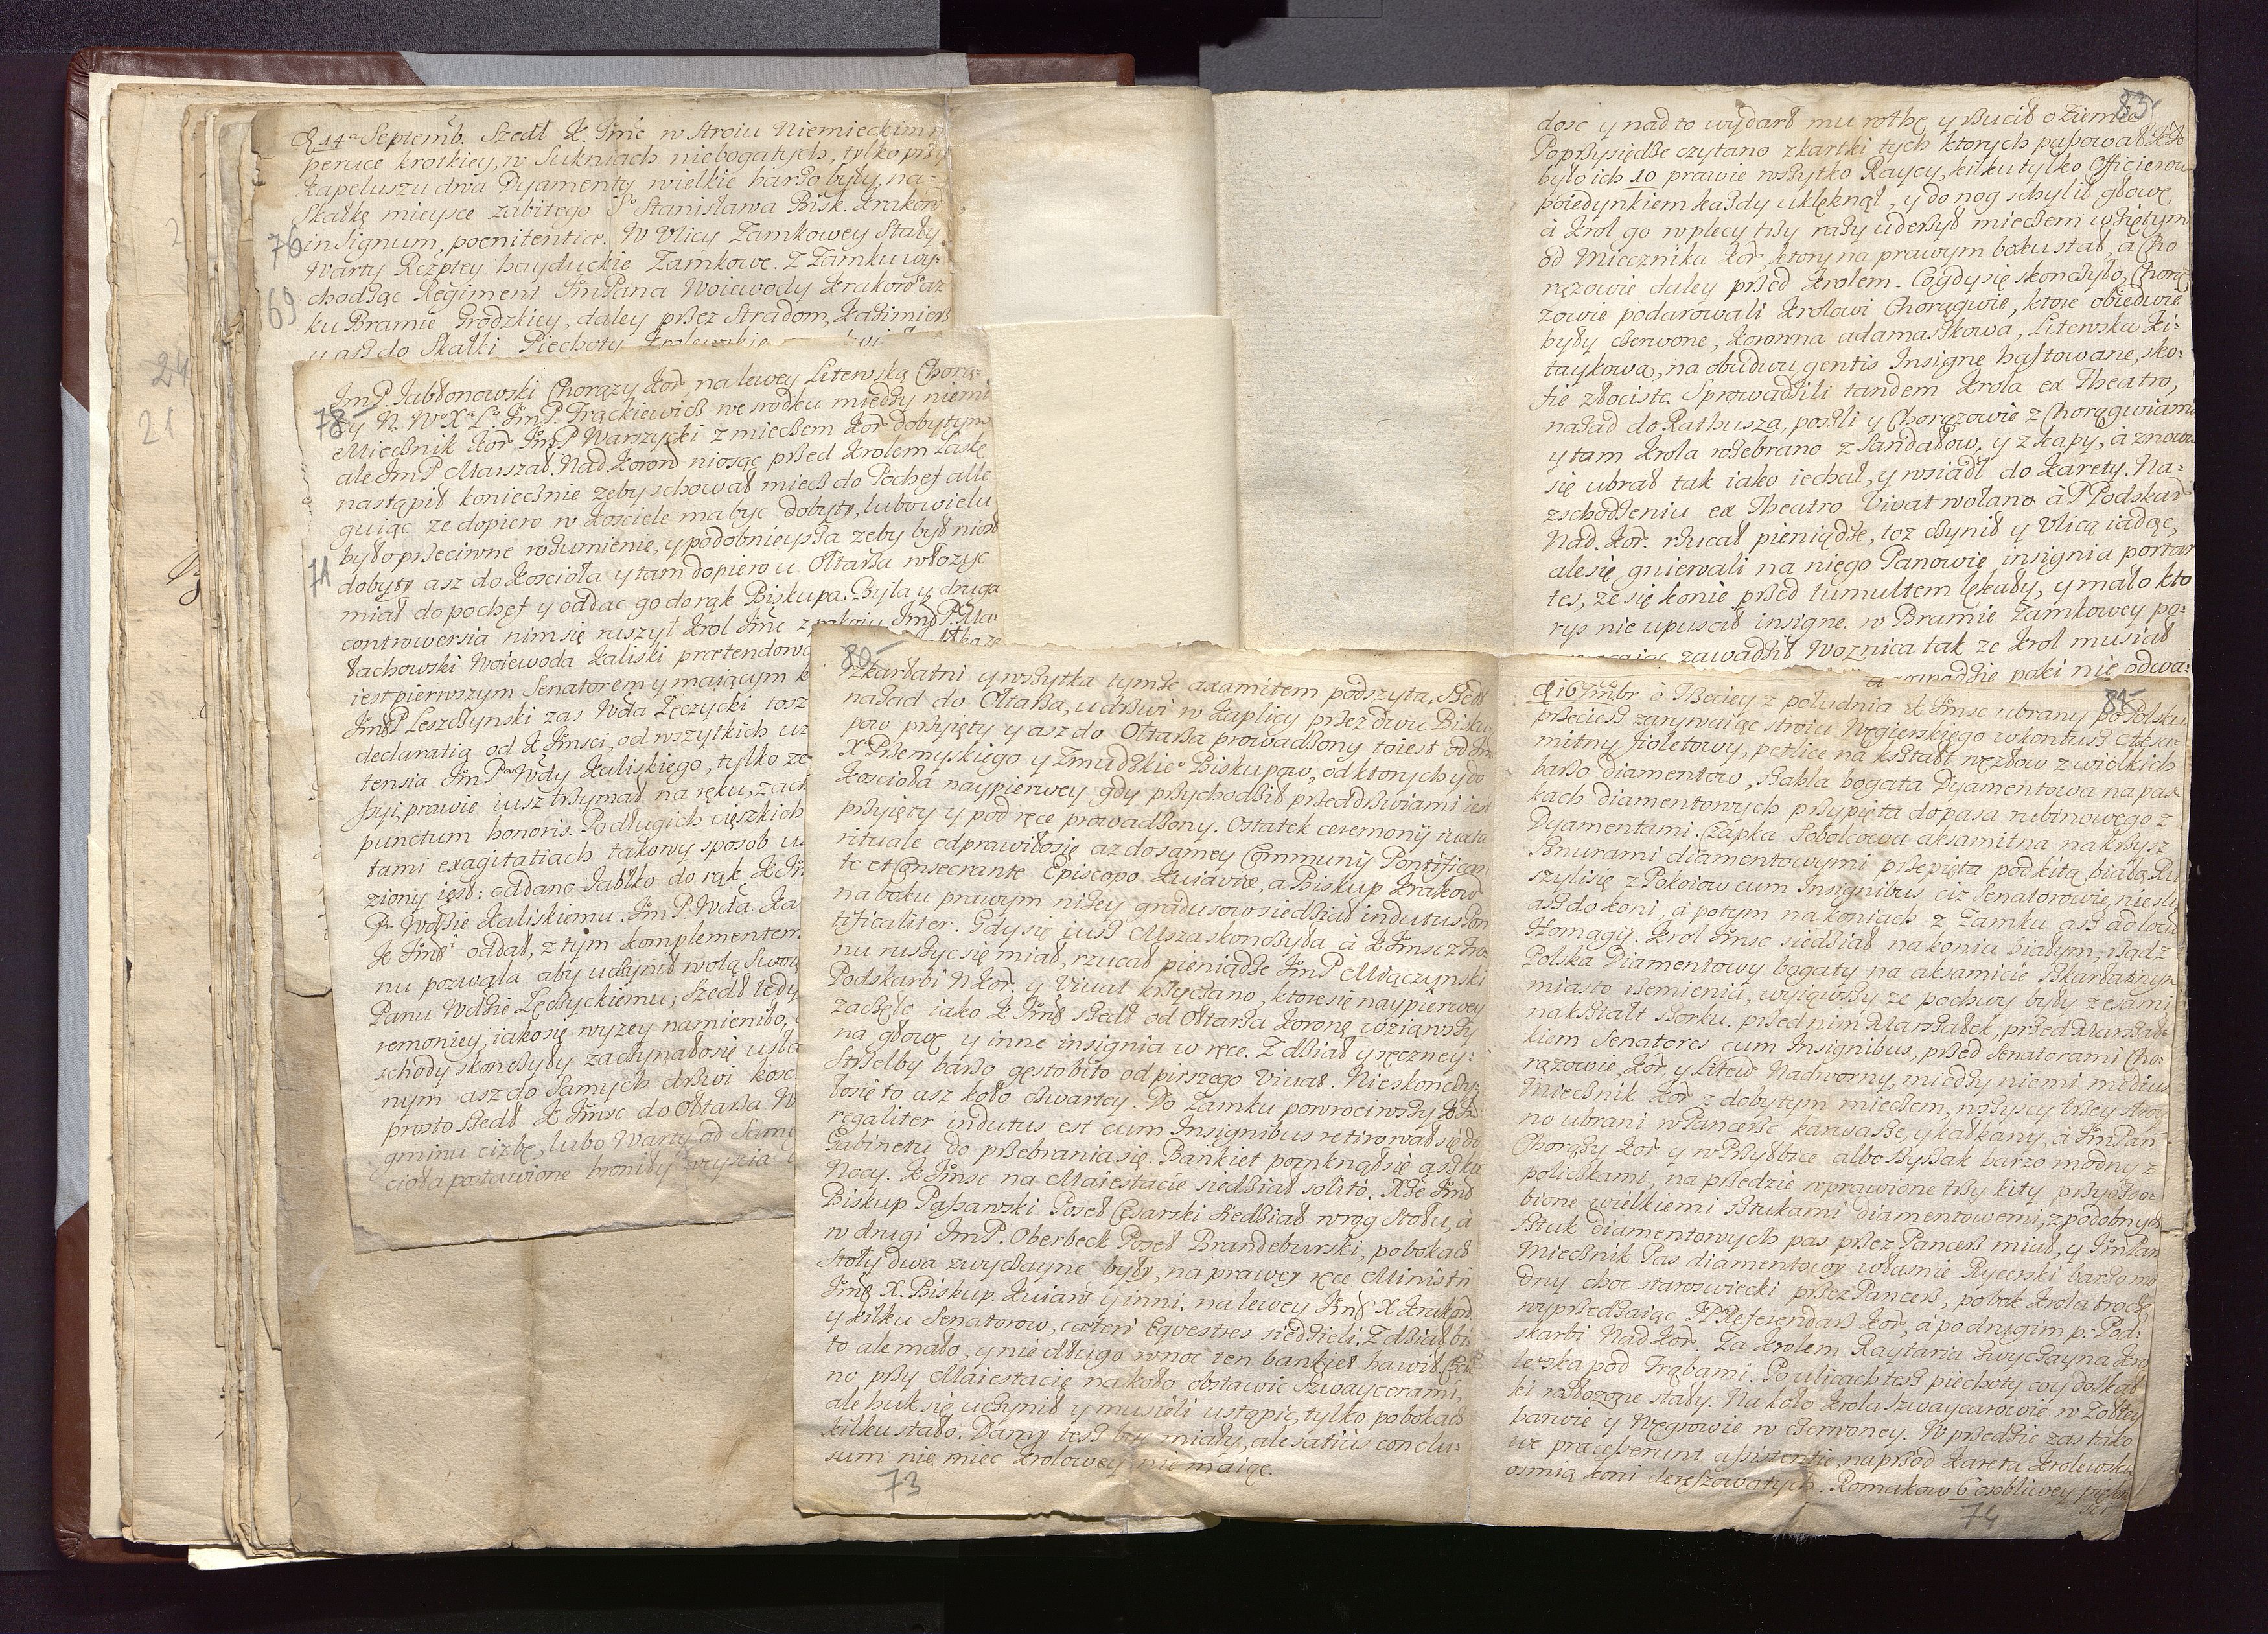 d. 14a Septemb. Szedł K. Jmć w Stroiu Niemieckim
peruce krotkiey, w Sukniach niebogatych, tylko przy
kapeluszu dwa Dyamenty wielkie barzo były, na=
Skałkę mieysce zabitego So Stanisława Bisk. Krakow.
in Signum poenitentiæ. W Vlicy Zamkowey Stały
76
Warty Rezptey hayduckie Zamkowe. Z Zamku wy=
chodząc Regiment JmPana Woiewody Krakowo az
69
ku Bramie Grodzkiey, daley przez Stradom, Kazimierz
y asz do Skałki Piechoty Krolewskie
24
21
JmP. Jabłonowski Chorązy Kor. na lewey Litewską Chorą=
78
zy N. Wo Xa Lo JmP. Frąckiewicz we srodku między niemi
Miecznik Kor JmP Warszycki z mieczem Kor dobytym
ale JmP Marszał. Nad. Koron niosąc przed Krolem Laskę
nastąpił koniecznie zeby schował miecz do Pochef alle
guiąc ze dopiero w Kosciele ma byc dobyty, lubo wielu
było przeciwne rozumienie, y podobnieysza zeby był niosł
71
dobyty asz do Koscioła y tam dopiero u Ołtarza włozyc
miał do pochef y oddac go do rąk Biskupa. Była y druga
controwersia nim się ruszył Krol Jmć z pokoiu JmP. Ma=
łachowski Woiewoda Kaliski prætendowa
iest pierwszym Senatorem y maiącym k
JmP Leszczynski zas Wda Łęczycki tosz
declaratią od K Jmsci, od wszytkich uz
tensia JmPa Wdy Kaliskiego, tylko ze
szyi, prawie iusz trzymał na ręku, zach
punctum honoris. Po długich cięszkich
tami exagitatiach takowy sposob u
ziony iest: oddano Jabłko do rąk K Jm
Pu Wdzie Kaliskiemu. JmP. Wda Ka
K Jmści oddał, z tym komplementem
nu pozwala aby uczynił wolą Swoię
Panu Wdzie Łęczyckiemu; Szedł tedy
remoniey, iako się wyzey namieniło,
schody skonczyły zaczynało się usła
nym asz do Samych drzwi kosc
prosto szedł K Jmsc do Ołtarza W
gminu cizbę, lubo Warty od Same
cioła postawione broniły weyscia
80
szkarłatni y wszytka tymze axamitem podszyta. Szedł
nazad do Ołtarza, u drzwi w kaplicy przez dwu Bisku
pow przyięty y asz do Ołtarza prowadzony toiest od Jm
X Przemyskiego y Zmudzkiego Biskupow, od ktorych y do
Koscioła naypierwey gdy przychodził przed drzwiami iest
przyięty y pod ręce prowadzony. Ostatek ceremonij iuxta
rituale odprawiło się az do samey Communij Pontifican
te et Consecrante Episcopo Kuiaviæ, a Biskup Krakow
na boku prawym nizey gradusow siedział indutus Pon
tificaliter. Gdy się iusz Msza skonczyła à K Jmsc z tro
nu ruszyc się miał, rzucał pieniądze JmP Mączynski
Podskarbi N Kor. y Vivat krzyczano, ktore się naypierwey
zaczęło iako K Jmsc szedł od Ołtarza Koronę wziąwszy
na głowę y inne insignia w ręce. Z dział y ręczney=
Strzelby barzo gęsto bito od pirszego Vivat. Nie skonczy=
ło się to asz koło czwartey. Do Zamku powrociwszy K Jm
regaliter indutus est cum Insignibus retirował się do
Gabinetu do przebrania się. Bankiet pomknął się asz ku
Nocy. K Jmsc na Maiestacie siedział solito. Xze Jmsc
Biskup Passawski Poseł Cesarski siedział w rog Stołu, à
w drugi JmP. Oberbeck Poseł Brandeburski, po bokach
Stoły dwa zwyczayne były, na prawey ręce Ministri
Jmsc X. Biskup Kuiaw y inni. na lewey Jmsc X Krakow
y kilku Senatorow, cæteri Eqvestres siedzieli. Z dział bi=
to ale mało, y nie długo w noc ten bankiet bawił.
no przy Maiestacie na koło obstawic Szwaycerami,
ale huk się uczynił y musieli ustąpic, tylko po bokach
kilku stało. Damy tesz byc miały, ale satius conclu=
sum nie miec Krolowey nie maiąc.
73
83
dosc y nad to wydarł mu rothę y rzucił o Ziemię
Po przysiędze czytano z kartki tych ktorych pasował
było ich 10 prawie wszytko Raycy, kilku tylko Officierow
poiedynkiem kazdy uklęknął, y do nog schylił głowę
à Krol go w plecy trzy razy uderzył mieczem wziętym
od Miecznika Kor, ktory na prawym boku stał, à Cho
rązowie daley przed Krolem. Co gdy się skonczyło, Chorą
zowie podarowali Krolowi Chorągwie, ktore obiedwie
były czerwone, Koronna adamaszkowa, Litewska Ki=
taykowa, na obudwu gentis Insigne haftowane, sko=
fie złociste. Sprowadzili tandem Krola ex Theatro,
nazad do Rathusza, poszli y Chorązowie z Chorągwiami
y tam Krola rozebrano z Sandałow, y z kapy, à znowu
się ubrał tak iako iechał, y wsiadł do Karety. Na=
zschodzeniu ex Theatro Vivat wołano à P Podskar
Nad. Kor. rzucał pieniądze, toz czynił y Vlicą iadąc,
ale się gniewali na niego Panowie insignia portan
tes, ze się konie przed tumultem lękały, y mało kto
rys nie upuscił insigne. w Bramie Zamkowey po=
zawadził Woznica tak ze Krol musiał
poki nie odwa=
84
d. 16 7mbr o Trzeciey z południa K Jmsc ubrany po Polsku
przeciesz zarywaiąc stroiu Węgierskiego w kontusz Aksa=
mitny fioletowy, petlice na kształt węzłow z wielkich
barzo diamentow, szabla bogata Dyamentowa na pas
kach diamentowych przypięta do pasa rubinowego z
Dyamentami. Czapka Sobolcowa aksamitna na krzysz
sznurami diamentowymi przepięta pod kitą białą. Ru
szyli się z Pokoiow cum Insignibus ciz Senatorowie, niesli
asz do koni, à potym na koniach z Zamku asz ad locum
Homagij. Krol Jmsc siedział na koniu białym, rząd z
Polska Diamentowy bogaty na aksamicie szkarłatnym
miasto rzemienia, wyiąwszy ze pochwy były z esami
na kształt Korku. przed nim Marszałek, przed Marszał=
kiem Senatores cum Insignibus, przed Senatorami Cho=
rązowie, Kor, y Litew Nadworny, między niemi medius
Miecznik Kor z dobytym mieczem, wszyscy trzey stroy
no ubrani w Pancerze karwasze, y kałkany, à JmPan
Chorązy Kor y w Przyłbice albo szyszak barzo modny z
policzkami, na przedzie wprawione trzy kity przyozdo=
bione wielkiemi sztukami diamentowemi, z podobnych
sztuk diamentowych pas przez Pancerz miał, y JmPan
Miecznik Pas diamentowy własnie Rycerski barzo mo
dny choc staroswiecki przez Pancerz, po bok Krola trochę
wyprzedzaiąc JP Referendarz Kor, à po drugim p. Pod=
skarbi Nad Kor. Za Krolem Raytaria zwyczayna Kro
lewska pod Trąbami. Po ulicach tesz piechoty coy do Skał
ki rozłozone stały. Na koło Krola Szwaycarowie w Zołtey
barwie y Węgrowie w czerwoney. W przedzie zas tako
we præcesserunt assistentie, naprzod Kareta Krolewska
osmią koni dereszowatych. Romakow 6 osobliwey piękn
74